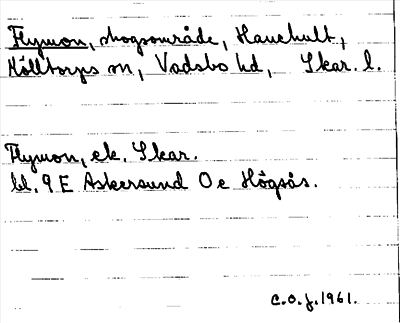 Flymon, skogsområde, Hauehult,
Mölltorps sn, Vadsbo hd, Skar. l.
Flymon, ek. Skar.
bl. 9 E Askersund O e Högsås.
C.O.J. 1961.